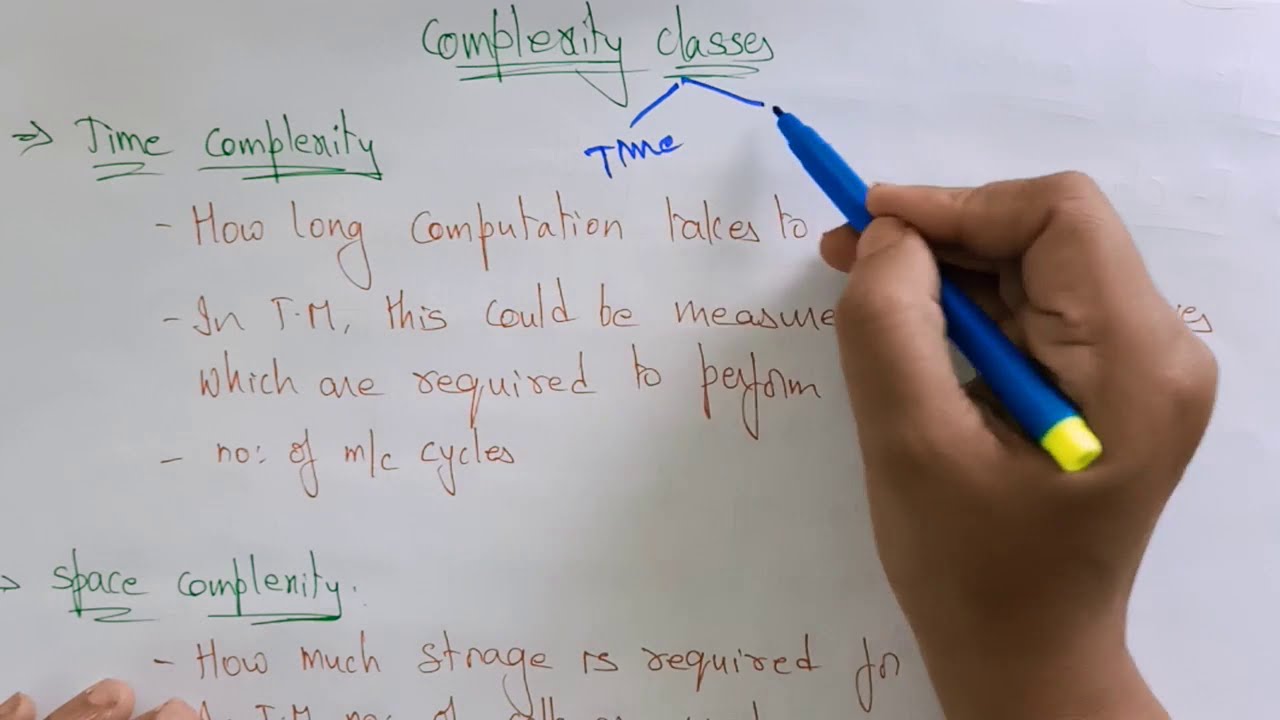 Complexity classes
Time
⇒ Time complexity
- How long computation takes to
- In T.M, this could be measure
which are required to perform
- no: of m/c cycles
space complexity.
- How much strage is required for